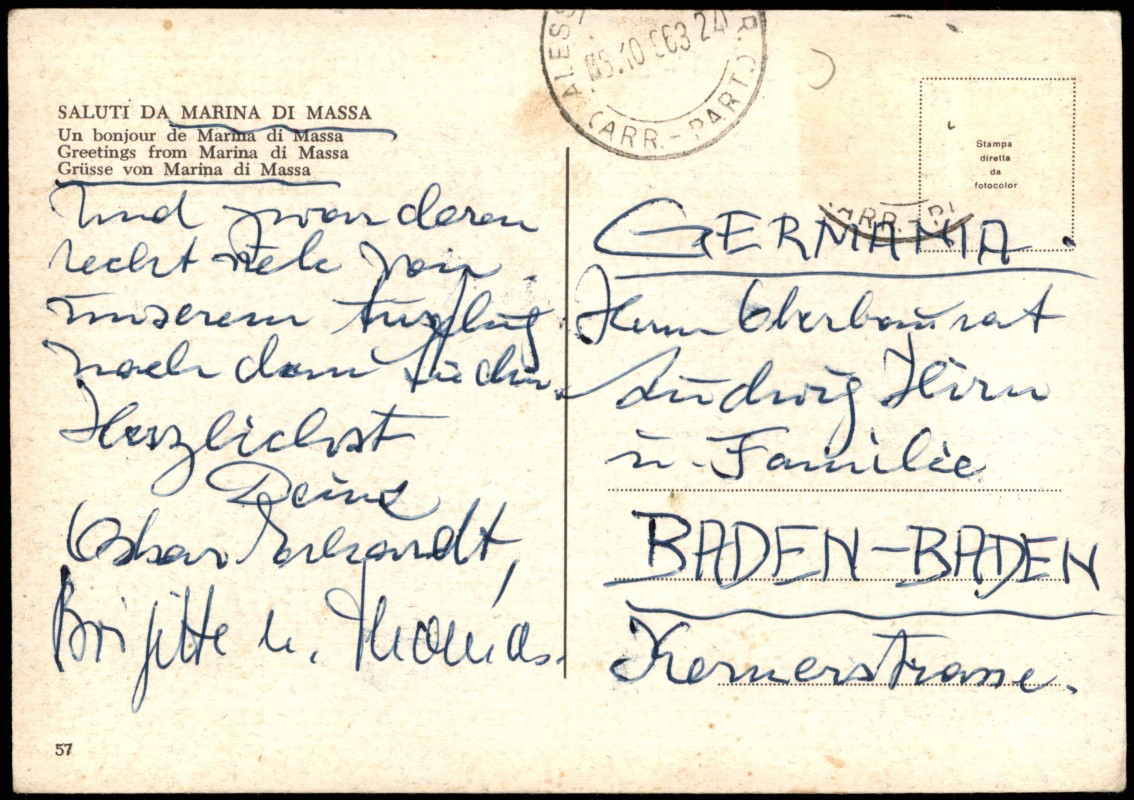 SALUTI DA MARINA DI MASSA
Un bonjour de Marina di Massa
Greetings from Marina di Massa
Grüsse von Marina di Massa
und zwar deren
recht viele von
unserem Ausflug
nach dem Süden.
Herzlichst
Deine
Oskar Erhardt,
Brigitte u. Thomas.
57
(ARR.-PART.)
Stampa
diretta
da
fotocolor
GERMANIA.
Herrn Oberbaurat
Ludwig Hirn
u. Familie
BADEN-BADEN
Kernerstrasse.